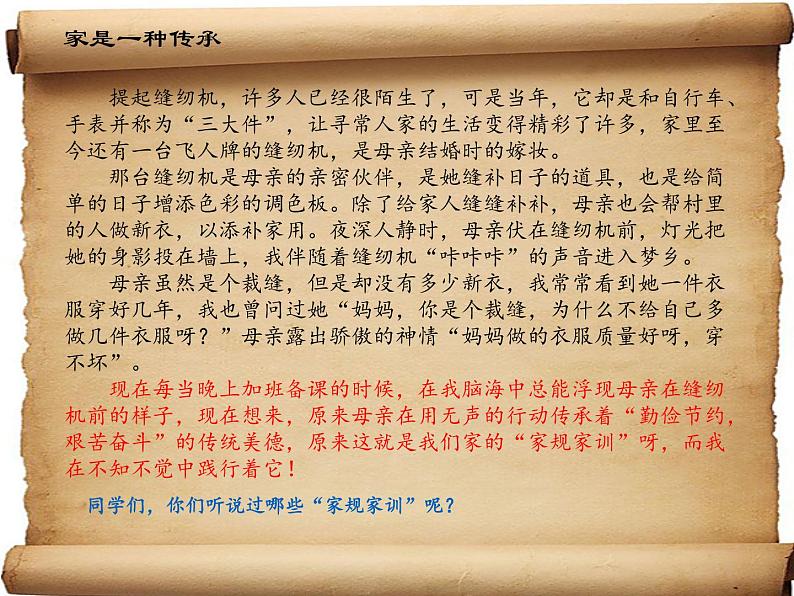 家是一种传承
提起缝纫机，许多人已经很陌生了，可是当年，它却是和自行车、
手表并称为“三大件”，让寻常人家的生活变得精彩了许多，家里至
今还有一台飞人牌的缝纫机，是母亲结婚时的嫁妆。
那台缝纫机是母亲的亲密伙伴，是她缝补日子的道具，也是给简
单的日子增添色彩的调色板。除了给家人缝缝补补，母亲也会帮村里
的人做新衣，以添补家用。夜深人静时，母亲伏在缝纫机前，灯光把
她的身影投在墙上，我伴随着缝纫机“咔咔咔”的声音进入梦乡。
母亲虽然是个裁缝，但是却没有多少新衣，我常常看到她一件衣
服穿好几年，我也曾问过她“妈妈，你是个裁缝，为什么不给自己多
做几件衣服呀？”母亲露出骄傲的神情“妈妈做的衣服质量好呀，穿
不坏”。
现在每当晚上加班备课的时候，在我脑海中总能浮现母亲在缝纫
机前的样子，现在想来，原来母亲在用无声的行动传承着“勤俭节约，
艰苦奋斗”的传统美德，原来这就是我们家的“家规家训”呀，而我
在不知不觉中践行着它！
同学们，你们听说过哪些“家规家训”呢？